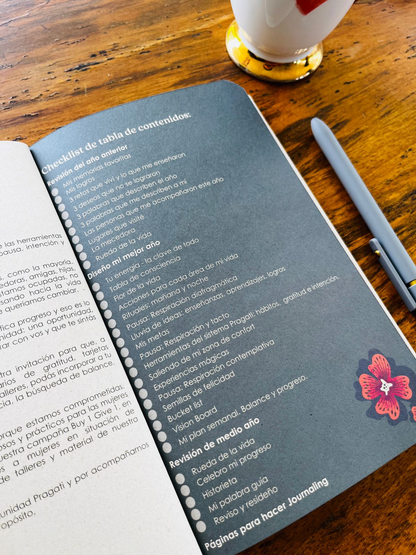 las herramientas
pausa, intención y
como la mayoría,
adoras, amigas, hijas,
estamos ocupadas, no
sando hacia la vida
e queríamos cambiar.
fica progreso y eso es lo
nidad: una oportunidad,
rar con vos y que te sintás
tra invitación para que, a
arios de gratitud, tarjetas
talleres, podás incorporar a tu
cia, la búsqueda de balance
orque estamos comprometidas
osos y prácticos para las mujeres
uestra campaña Buy 1 Give 1, en
s a mujeres en situación de
de talleres y material de nuestra
unidad Pragati y por acompañarnos
opósito.
Checklist de tabla de contenidos:
Revisión del año anterior
Mis memorias favoritas
Mis logros
3 retos que viví y lo que me enseñaron
3 deseos que no se lograron
3 palabras que describen el año
3 palabras que me describen a mí
Las personas que me acompañaron este año
Lugares que visité
La mecedora
Rueda de la vida
Diseño mi mejor año
Tu energía - la clave de todo
Tabla de consciencia
Flor de la vida
Acciones para cada área de mi vida
Rituales: mañana y noche
Pausa: Respiración diafragmática
Lluvia de ideas: enseñanzas, aprendizajes, logros
Mis metas
Pausa: Respiración y tacto
Herramientas del sistema Pragati: hábitos, gratitud e intención.
Saliendo de mi zona de confort
Experiencias mágicas
Pausa: Respiración contemplativa
Semillas de felicidad
Bucket list
Vision Board
Mi plan semanal: Balance y progreso.
Revisión de medio año
Rueda de la vida
Celebro mi progreso
Historieta
Mi palabra guía
Reviso y rediseño
Páginas para hacer Journaling